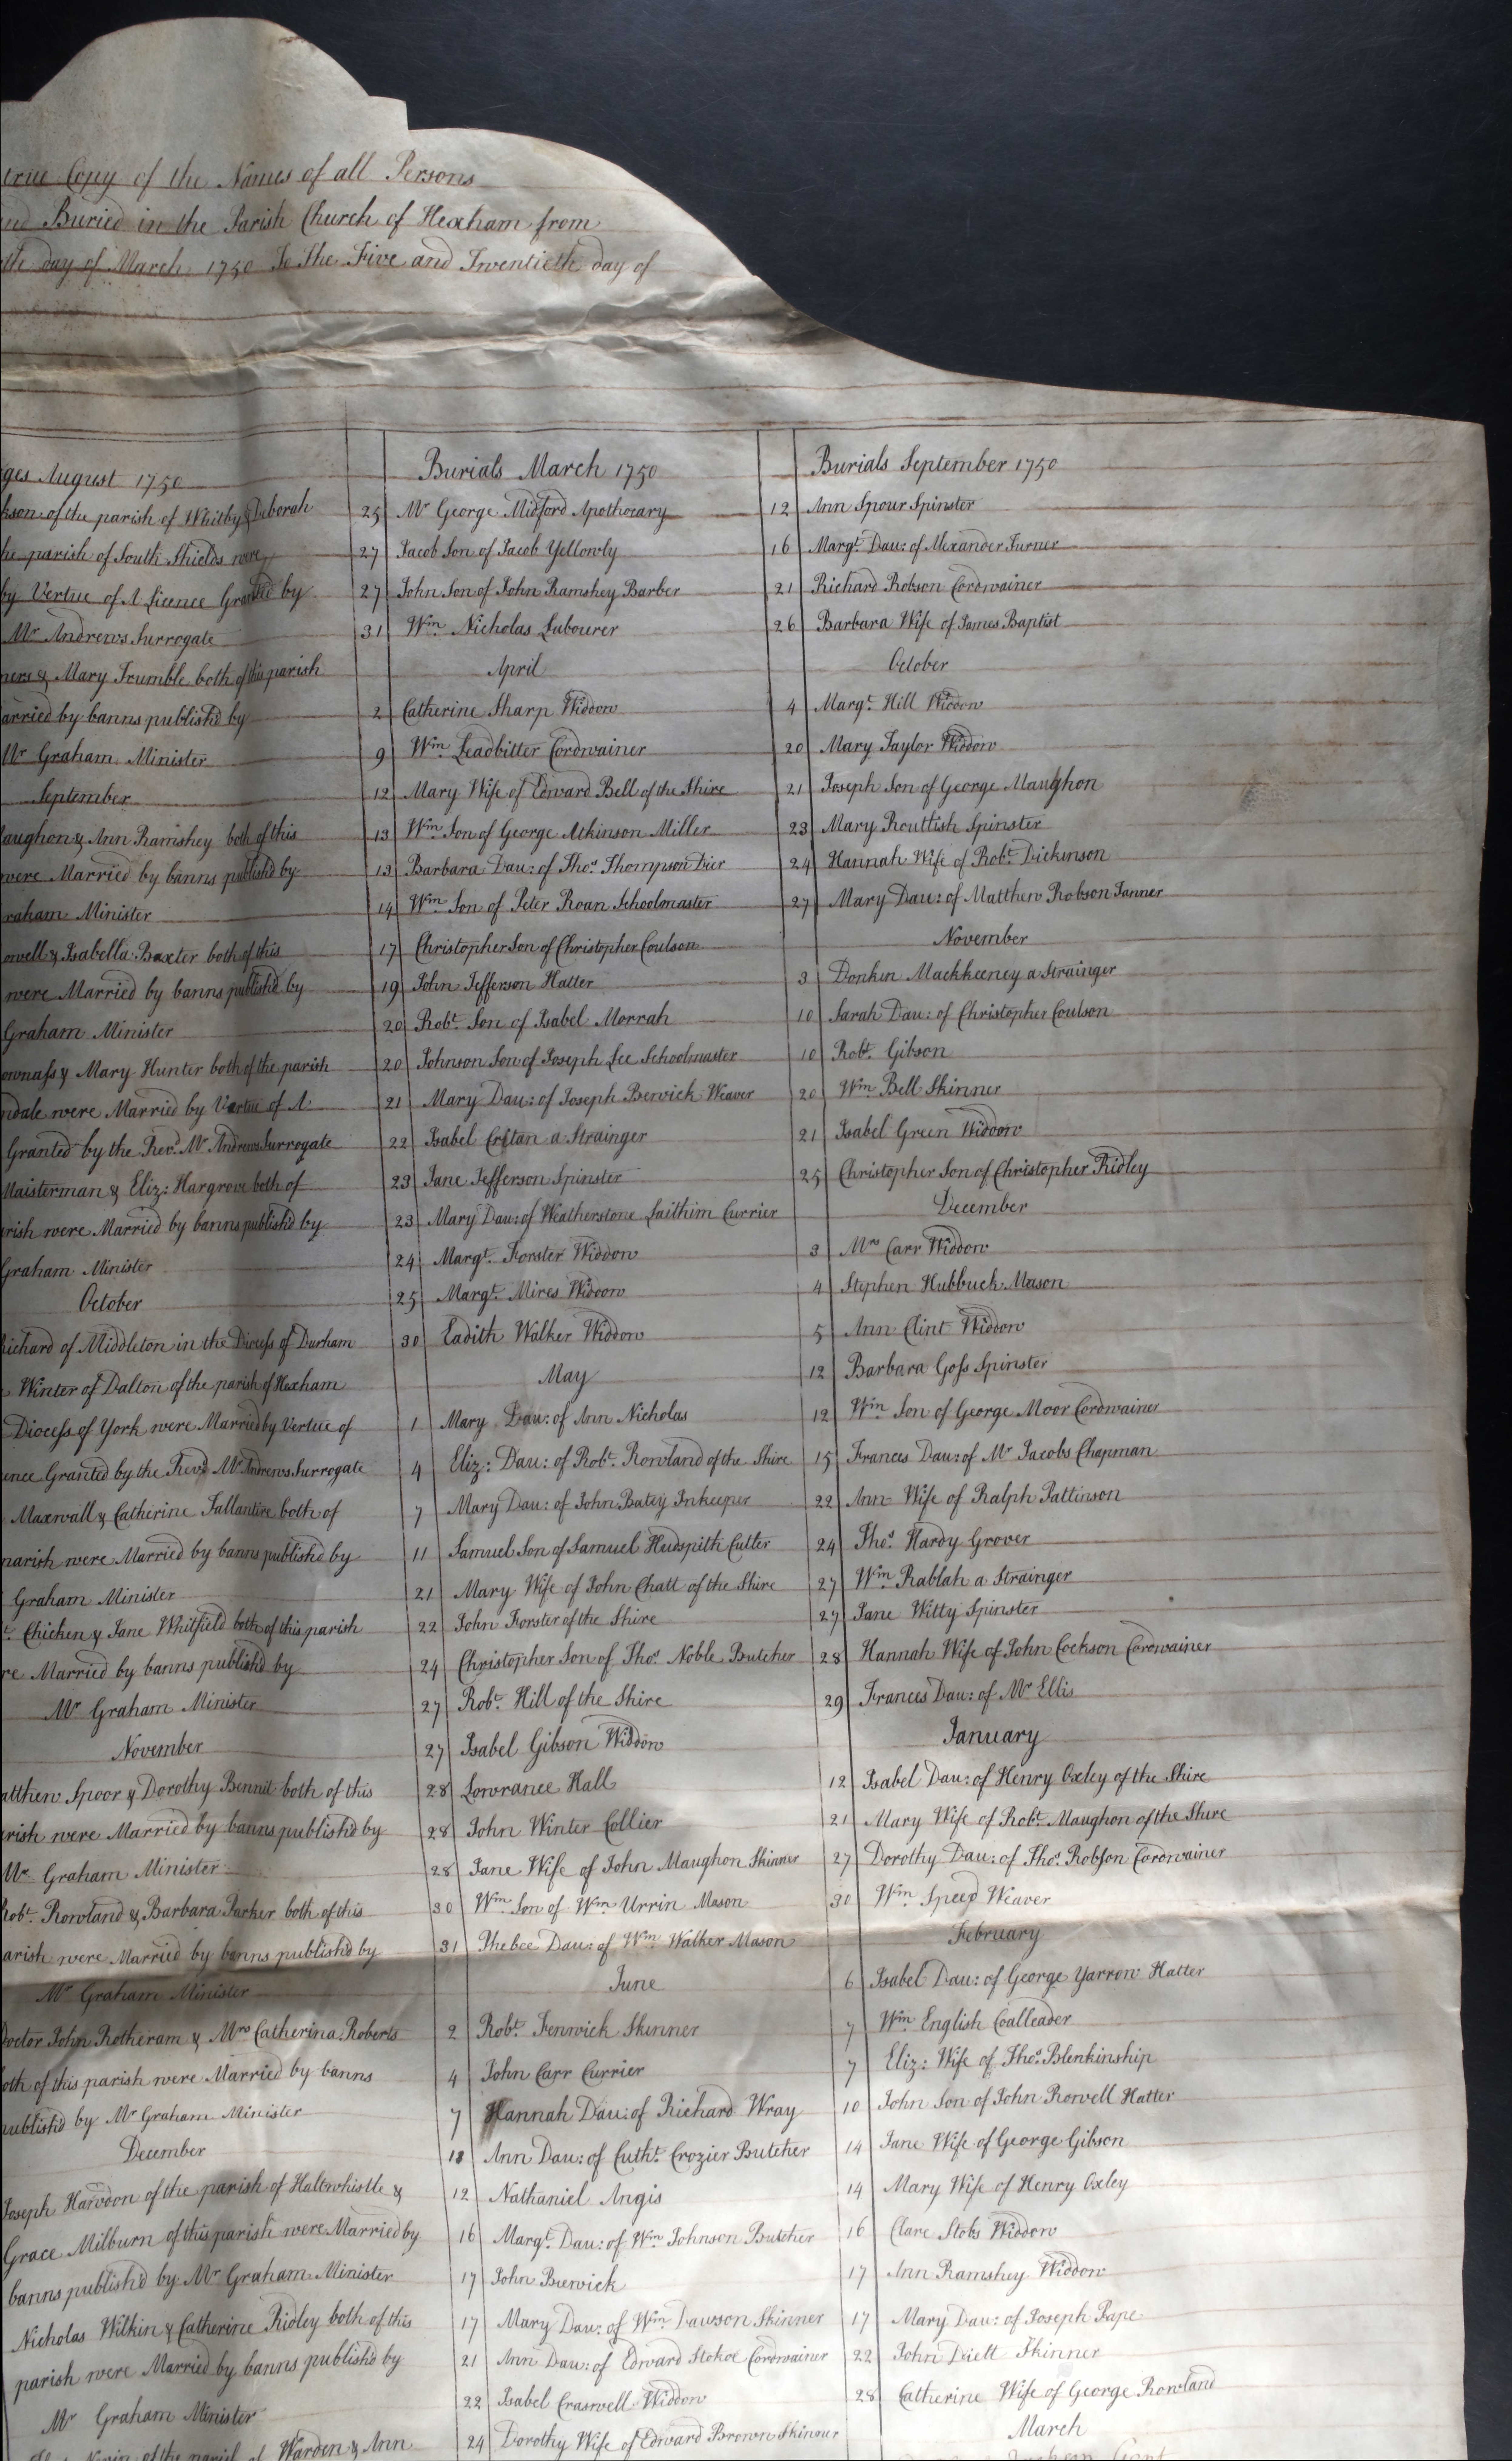 true Copy of the Names of all Persons
and Buried in the Parish Church of Hexham from
day of March 1750 To The Five and Twentieth day of
August 1750
of the parish of Whitby & Deborah
parish of South Shields were
by Vertue of A Licence Granted by
Mr Andrews Surrogate
& Mary Trumble both of this parish
arried by banns publish'd by
Mr Graham Minister
September
aughon & Ann Ramshey both of this
were Married by banns publish'd by
raham Minister
owell & Isabella Baxter both of this
were Married by banns publish'd by
Graham Minister
& Mary Hunter both of the parish
ndale were Married by Vertue of A
Granted by the Revd. Mr Andrews Surrogate
Maisterman & Eliz: Hargrove both of
rish were Married by banns publish'd by
Graham Minister
October
Richard of Middleton in the Diocess of Durham
Winter of Dalton of the parish of Hexham
Diocess of York were Married by Vertue of
ence Granted by the Revd. Mr Andrews Surrogate
Maxwall & Catherine Tallantire both of
parish were Married by banns publish'd by
Graham Minister
Chicken & Jane Whitfield both of this parish
re Married by banns publish'd by
Mr Graham Minister
November
atthew Spoor & Dorothy Bennit both of this
arish were Married by banns publish'd by
Mr Graham Minister
Robt. Rowland & Barbara Parker both of this
arish were Married by banns publish'd by
Mr Graham Minister
Doctor John Rotheram & Mrs Catherina Roberts
both of this parish were Married by banns
publish'd by Mr Graham Minister
December
Joseph Harvdon of the parish of Haltwhistle &
Grace Milburn of this parish were Married by
banns publish'd by Mr Graham Minister
Nicholas Wilkin & Catherine Ridley both of this
parish were Married by banns publish'd by
Mr Graham Minister
of the parish of Warden & Ann
Burials March 1750
25 Mr George Midford Apothocary
27 Jacob Son of Jacob Yellowly
27 John Son of John Ramshey Barber
31 Wm. Nicholas Labourer
April
2 Catherine Sharp Widdow
9 Wm. Leadbitter Cordwainer
12 Mary Wife of Edward Bell of the Shire
13 Wm. Son of George Atkinson Miller
13 Barbara Dau: of Thos. Thompson Dier
14 Wm. Son of Peter Roan Schoolmaster
17 Christopher Son of Christopher Coulson
19 John Jefferson Hatter
20 Robt. Son of Isabel Morrah
20 Johnson Son of Joseph Lee Schoolmaster
21 Mary Dau: of Joseph Berwick Weaver
22 Isabel a Strainger
23 Jane Jefferson Spinster
23 Mary Dau: of Weatherstone Laithim Currier
24 Margt. Forster Widdow
25 Margt. Mires Widdow
30 Eadith Walker Widdow
May
1 Mary Dau: of Ann Nicholas
4 Eliz: Dau: of Robt. Rowland of the Shire
7 Mary Dau: of John Batey Inkeeper
11 Samuel Son of Samuel Hudspith Cutter
21 Mary Wife of John Chatt of the Shire
22 John Forster of the Shire
24 Christopher Son of Thos. Noble Butcher
27 Robt. Hill of the Shire
27 Isabel Gibson Widdow
28 Lowrance Hall
28 John Winter Collier
28 Jane Wife of John Maughon Skinner
30 Wm. Son of Wm. Urrin Mason
31 Phebee Dau: of Wm. Walker Mason
June
2 Robt. Fenwick Skinner
4 John Carr Currier
7 Hannah Dau: of Richard Wray
Ann Dau: of Cutht. Crozier Butcher
12 Nathaniel Angis
16 Margt. Dau: of Wm. Johnson Butcher
17 John Berwick
17 Mary Dau: of Wm. Dawson Skinner
21 Ann Dau: of Edward Stokoe Cordwainer
22 Isabel Craswell Widdow
24 Dorothy Wife of Edward Brown Skinner
Burials September 1750
12 Ann Spour Spinster
16 Margt. Dau: of Alexander Turner
21 Richard Robson Cordwainer
26 Barbara Wife of James Baptist
October
4 Margt. Hill Widdow
20 Mary Taylor Widdow
21 Joseph Son of George Maughon
23 Mary Routtish Spinster
24 Hannah Wife of Robt. Dickinson
27 Mary Dau: of Matthew Robson Tanner
November
3 Donken Mackkeeney a Strainger
10 Sarah Dau: of Christopher Coulson
10 Robt. Gibson
20 Wm. Bell Skinner
21 Isabel Green Widdow
25 Christopher Son of Christopher Ridley
December
3 Mrs Carr Widdow
4 Stephen Hubbuck Mason
5 Ann Clint Widdow
12 Barbara Goss Spinster
12 Wm. Son of George Moor Cordwainer
15 Frances Dau: of Mr Jacobs Chapman
22 Ann Wife of Ralph Pattinson
24 Thos. Hardy Grover
27 Wm. Rablah a Strainger
27 Jane Witty Spinster
28 Hannah Wife of John Cockson Cordwainer
29 Frances Dau: of Mr Ellis
January
12 Isabel Dau: of Henry Oxley of the Shire
21 Mary Wife of Robt. Maughon of the Shire
27 Dorothy Dau: of Thos. Robson Cordwainer
30 Wm. Speed Weaver
February
6 Isabel Dau: of George Yarrow Hatter
7 Wm. English Coalleader
7 Eliz: Wife of Thos. Blenkinship
10 John Son of John Rowell Hatter
14 Jane Wife of George Gibson
14 Mary Wife of Henry Oxley
16 Clare Stobs Widdow
17 Ann Ramshey Widdow
17 Mary Dau: of Joseph Pape
22 John Diett Skinner
28 Catherine Wife of George Rowland
March